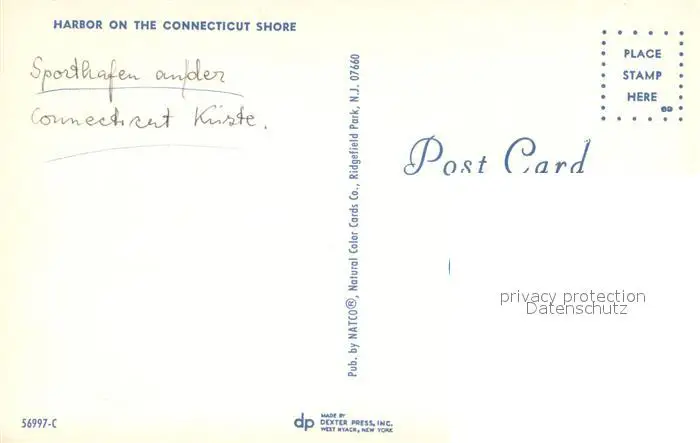 HARBOR ON THE CONNECTICUT SHORE
Sporthafen an der
Connecticut Küste.
Pub. by NATCO®, Natural Color Cards Co., Ridgefield Park, N.J. 07660
PLACE
STAMP
HERE
Post Card
privacy protection
Datenschutz
56997-C
dp
MADE BY
DEXTER PRESS, INC.
WEST NYACK, NEW YORK